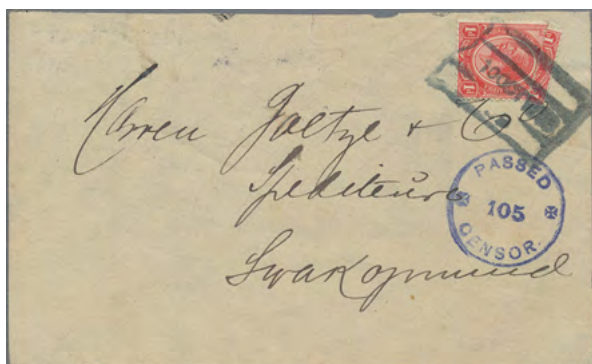 1d 1d
Herren Goetze & Co
Spediteure
Swakopmund
PASSED
105
CENSOR.